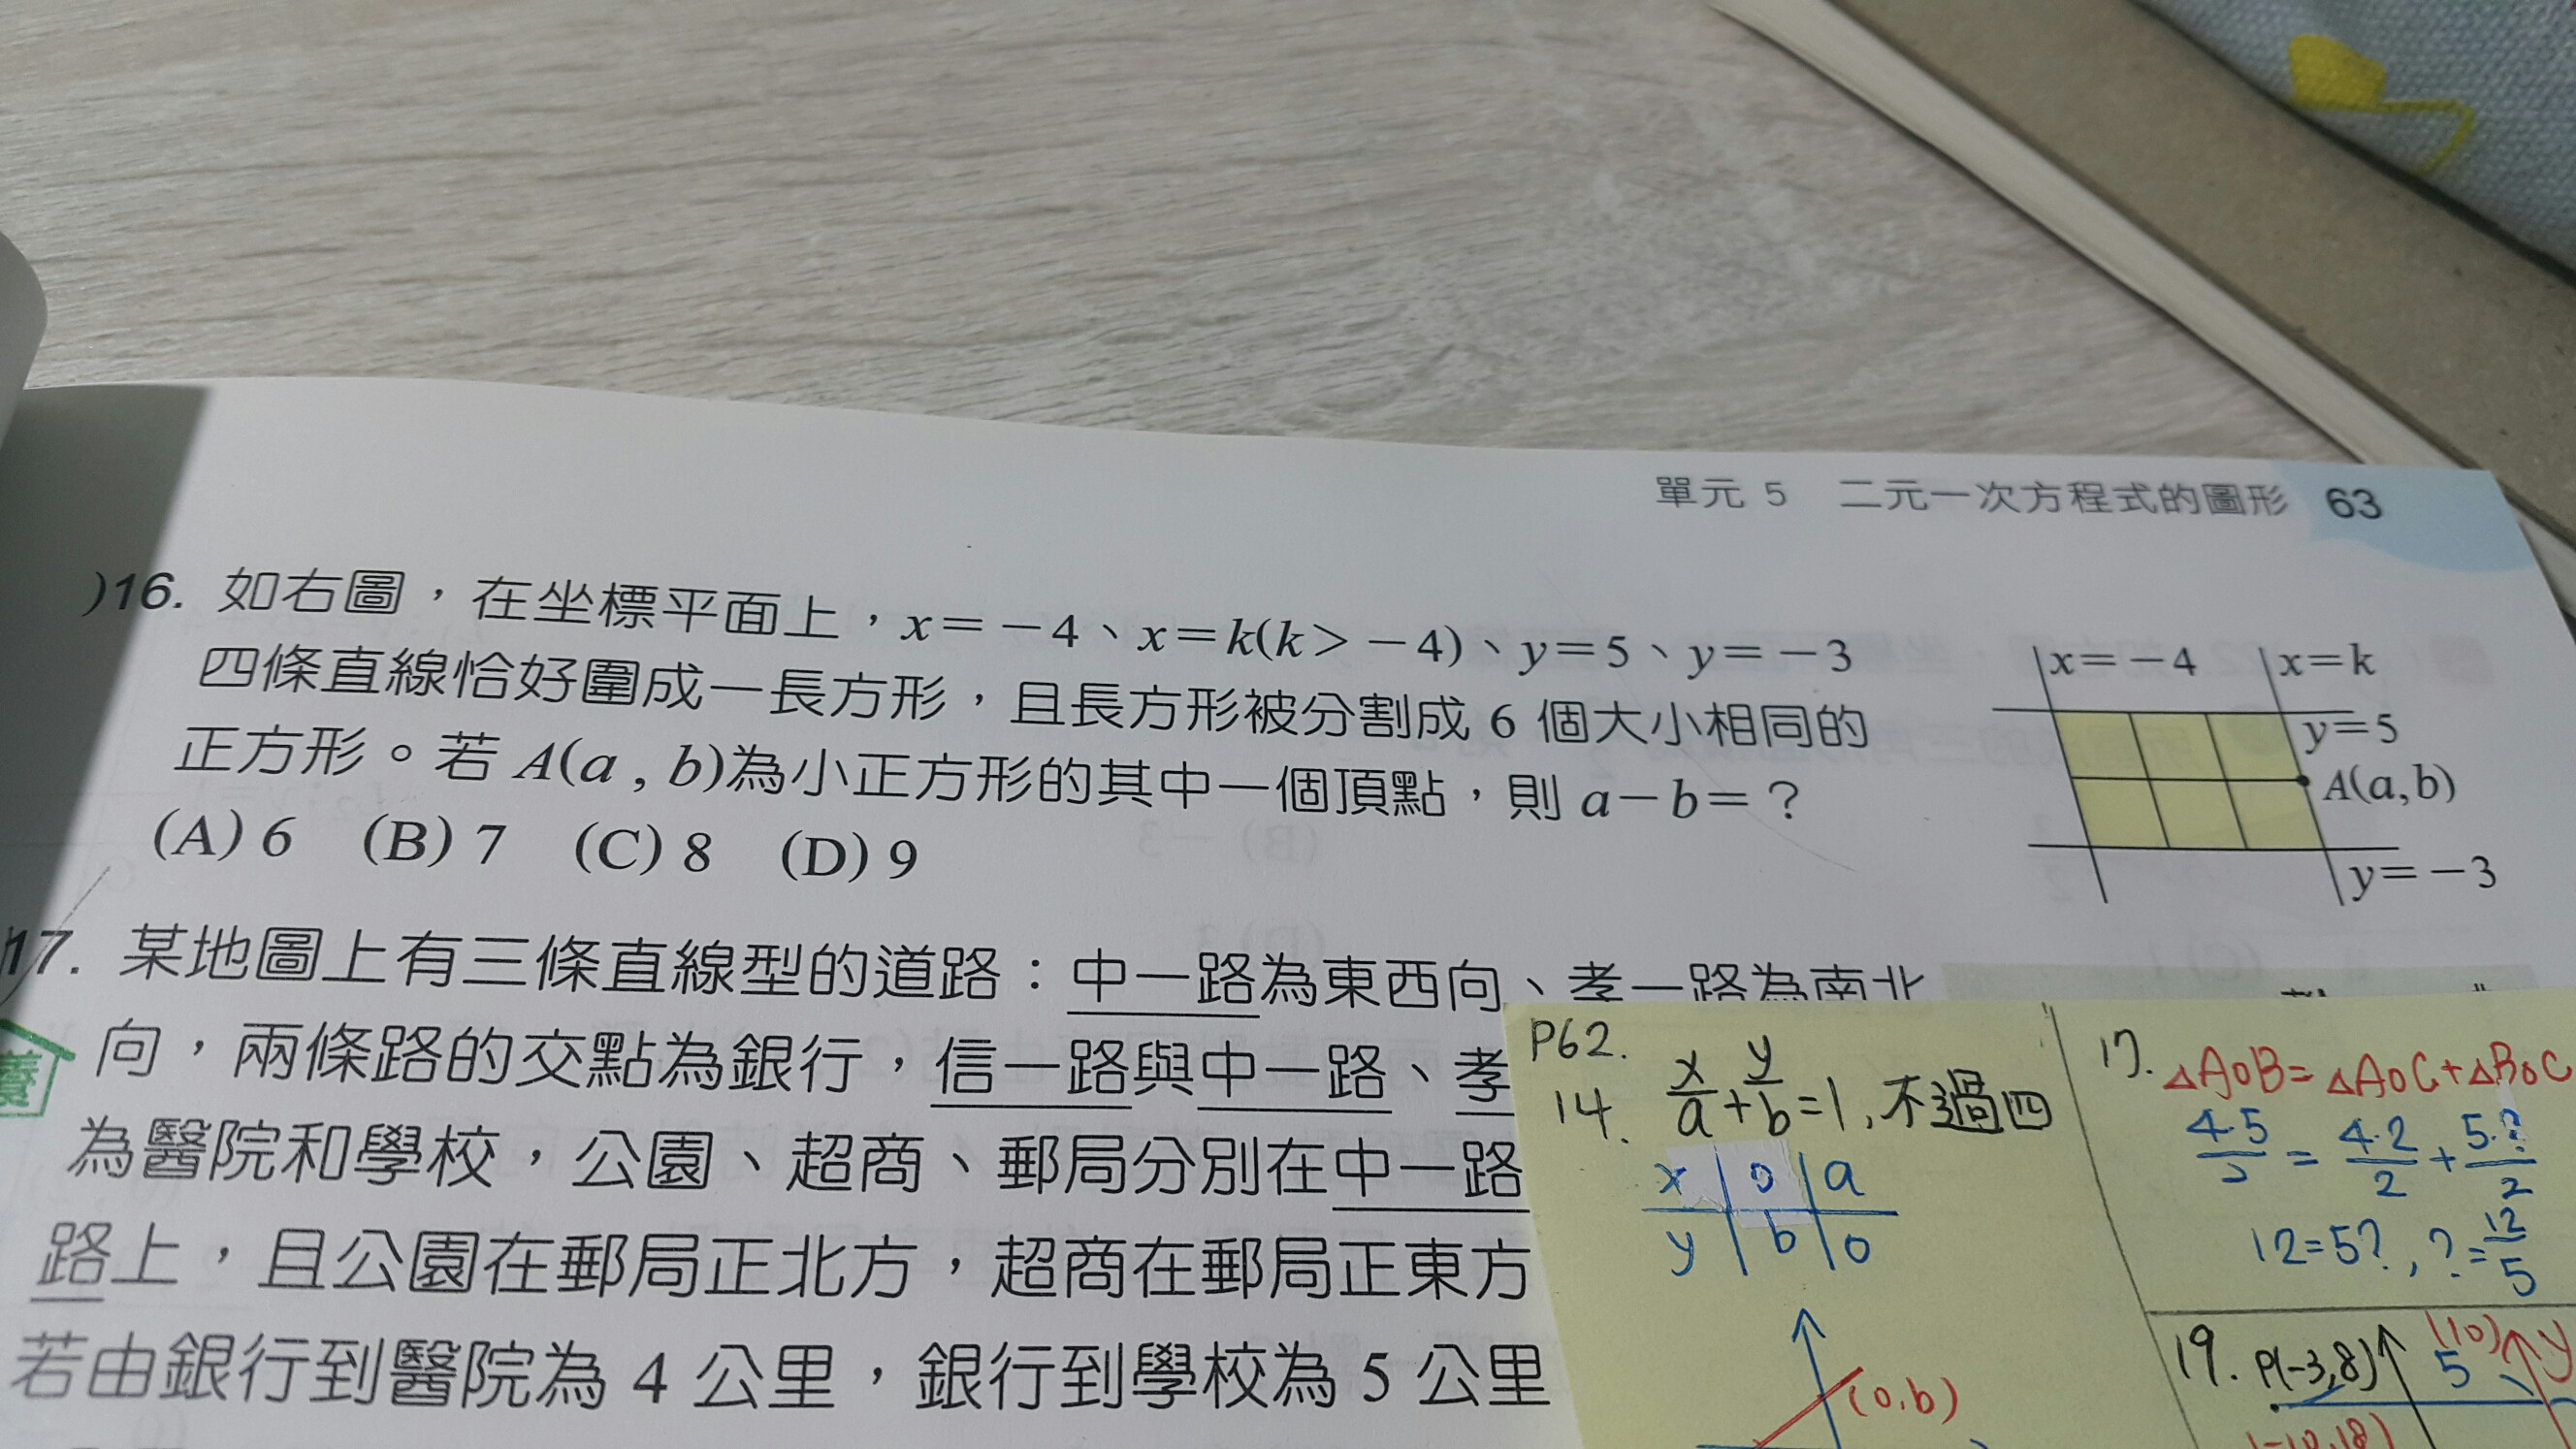 單元 5 二元一次方程式的圖形 63
)16. 如右圖，在坐標平面上，x=-4、x=k(k>-4)、y=5、y=-3
四條直線恰好圍成一長方形，且長方形被分割成 6 個大小相同的
正方形。若 A(a , b)為小正方形的其中一個頂點，則 a-b=？
(A) 6 (B) 7 (C) 8 (D) 9
x=-4 x=k
y=5
A(a,b)
y=-3
)17. 某地圖上有三條直線型的道路：中一路為東西向、孝一路為南北
向，兩條路的交點為銀行，信一路與中一路、孝
為醫院和學校，公園、超商、郵局分別在中一路
路上，且公園在郵局正北方，超商在郵局正東方
若由銀行到醫院為 4 公里，銀行到學校為 5 公里
養
P62.
14. x/a+y/b=1, 不過四
x 0 a
y b 0
(0,b)
17. △AOB=△AOC+△BOC
4·5/2 = 4·2/2 + 5·?/2
12=5?, ?=12/5
19. P(-3,8) 5 (10) y
(-10,18)